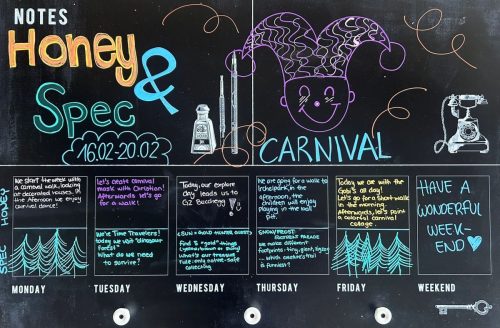 NOTES
Honey
&
Spec
16.02-20.02
CARNIVAL
HONEY
We start the week with
a carnival walk, looking
at decorated houses. In
the afternoon we enjoy
carnival dance!
Let's create carnival
mask with Christian!
Afterwards let's go
for a walk!
Today, our explore
day leads us to
GZ Buchegg
We are going for a walk to
in the
afternoon, the
children will enjoy
playing in the ball
pit.
Today we are with the
Gobi's all day!
Let's go for a short walk
in the morning.
Afterwards, let's paint
a colorful carnival
collage.
HAVE A
WONDERFUL
WEEK-
END
SPEC
We're Time Travelers!
today we visit "dinosaur
forest"
What do we need
to survive?
SUN + GOLD HUNTER QUEST!
find 5 "gold" things
What's our treasure
rule: only nature-safe
collecting
SNOW FROST
FOOTPRINT PARADE
We make different
footprints: tiny, giant, zigzag
... which creature's trail
is funniest?
MONDAY
TUESDAY
WEDNESDAY
THURSDAY
FRIDAY
WEEKEND